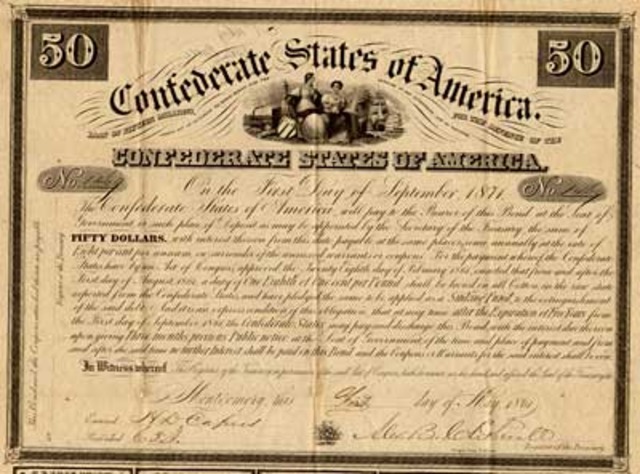 50
50
Confederate States of America.
LOAN OF FIFTEEN MILLIONS,
FOR THE DEFENCE OF THE
CONFEDERATE STATES OF AMERICA.
No
No
On the First Day of September 1871
The Confederate States of America, will pay to the Bearer of this Bond at the Seat of
Government or such place of Deposit as may be appointed by the Secretary of the Treasury, the sum of
FIFTY DOLLARS, with interest thereon from this date payable at the same places, semi annually at the rate of
Eight per cent per annum, on surrender of the annexed warrants or coupons. For the payment whereof the Confederate
States have by an Act of Congress, approved the Twenty Eighth day of February 1861, enacted that from and after the
First day of August 1861, a duty of One Eighth of One cent per Pound shall be levied on all Cotton in the raw state
exported from the Confederate States, and have pledged the same to be applied as a Sinking Fund, to the extinguishment
of the said debt. And it is an express condition of this obligation, that at any time after the Expiration of Five Years from
the First day of September 1861, the Confederate States may pay and discharge this Bond, with the interest due thereon
upon giving Three months previous Public notice at the Seat of Government of the time and place of payment and from
and after the said time no further Interest shall be paid on this Bond and the Coupons or Warrants for the said interest shall be void.
In Witness whereof
Montgomery, this day of May 1861
Entered
Recorded
Register of the Treasury